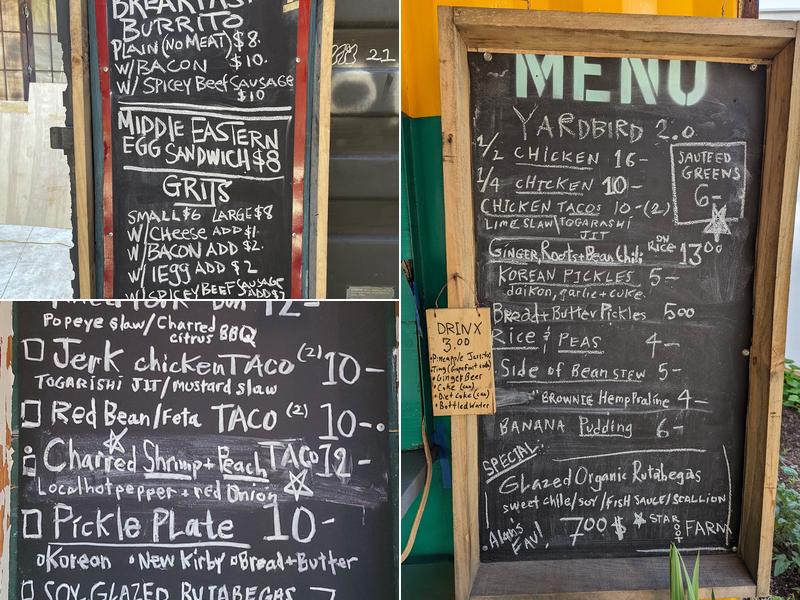 BREAKFAST
BURRITO
PLAIN (NO MEAT) $8.
W/ BACON $10.
W/ SPICEY BEEF SAUSAGE
$10
MIDDLE EASTERN
EGG SANDWICH $8
GRITS
SMALL $6 LARGE $8
W/ CHEESE ADD $1.
W/ BACON ADD $2.
W/ 1 EGG ADD $2
W/ SPICEY BEEF SAUSAGE
ADD $2
21
12-
Popeye slaw/Charred
citrus BBQ
Jerk chicken TACO (2) 10-
TOGARISHI JIT/mustard slaw
Red Bean/Feta TACO (2) 10-
Charred Shrimp + Peach TACO 12-
Local hot pepper + red Onion
Pickle Plate 10-
Korean New Kirby Bread + Butter
SOY-GLAZED RUTABEGAS 7
MENU
YARDBIRD 2.0
1/2 CHICKEN 16-
1/4 CHICKEN 10-
CHICKEN TACOS 10-(2)
LIME SLAW/TOGARASHI
JIT
SAUTEED
GREENS
6-
Ginger, Roots + Bean Chili ON Rice 13 00
KOREAN PICKLES 5-
daikon, garlic + cuke.
Bread + Butter Pickles 5 00
Rice & PEAS 4-
Side of BEAN STEW 5-
BROWNIE Hemp Praline 4-
BANANA Pudding 6-
SPECIAL:
Glazed Organic Rutabegas
sweet chile/soy/FISH SAUCE/SCALLION
Alan's FAV! 7 00 $ STAR ROOT FARM
DRINX
3.00
Pineapple
Ting (Grapefruit soda)
Ginger Beer
Coke (can)
Diet Coke (can)
Bottled Water